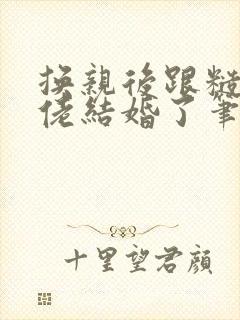 換親後跟糙
佬結婚了 筆
十里望君顏